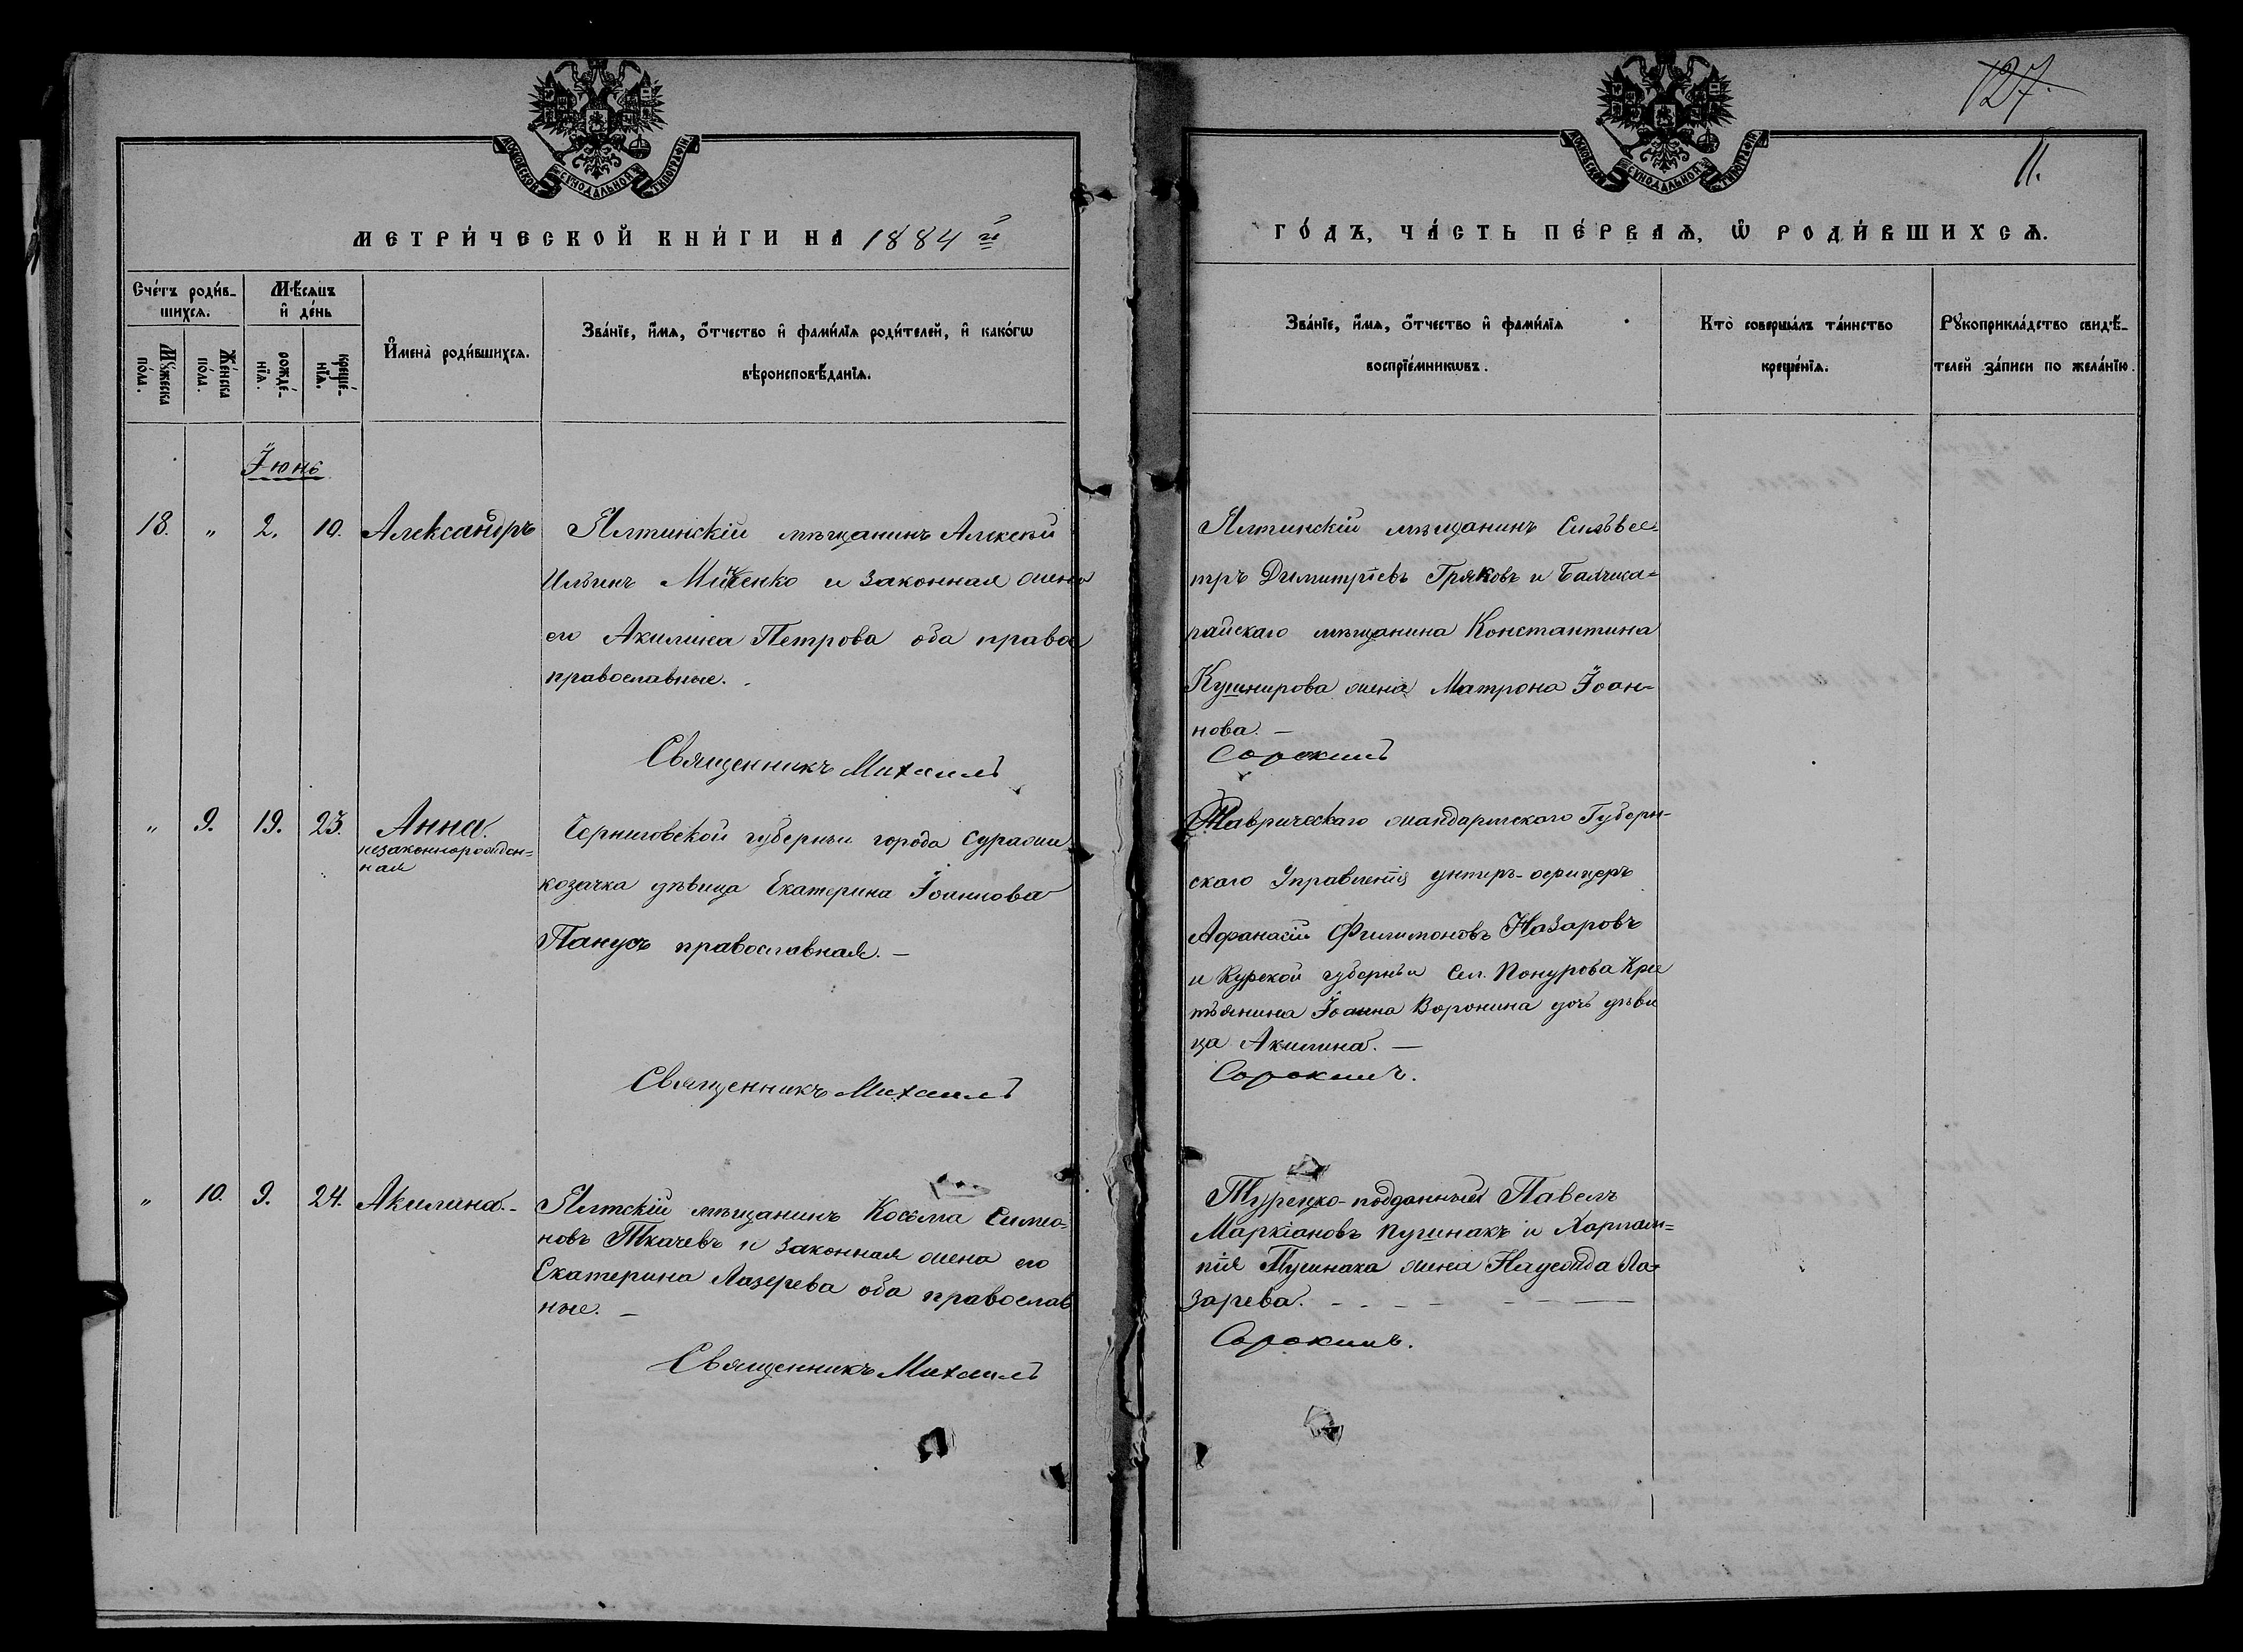 127.
11.
МОСКОВСКОЙ СѴНОДАЛЬНОЙ ТИПОГРАФІИ
МОСКОВСКОЙ СѴНОДАЛЬНОЙ ТИПОГРАФІИ
МЕТРИ́ЧЕСКОЙ КНИ́ГИ НА 1884 й
ГО́ДЪ, ЧА́СТЬ ПЕ́РВАѦ, Ѡ РОДИ́ВШИХСѦ.
Сче́тъ роди́в-
шихсѧ.
Мѣ́сѧцъ
и҆ де́нь
Мꙋ́жеска по́ла.
Же́нска по́ла.
рожде́-нїѧ.
креще́-нїѧ.
И҆мена̀ роди́вшихсѧ.
Зва́нїе, и҆́мѧ, ѻ҆́тчество и҆ фами́лїѧ роди́телей, и҆ како́гѡ
вѣроисповѣ́данїѧ.
Зва́нїе, и҆́мѧ, ѻ҆́тчество и҆ фами́лїѧ
воспрїе́мникѡвъ.
Кто̀ соверша́лъ та́инство
креще́нїѧ.
Рꙋкоприкла́дство свидѣ́-
телей за́писи по жела́нїю.
Іюнь
18. " 2. 10. Александръ
Ялтинскій мѣщанинъ Алексѣй
Ильинъ Миненко и законная жена
его Акилина Петрова оба право
православные.
Священникъ Михаилъ
Ялтинскій мѣщанинъ Сильвес-
тръ Димитріевъ Гряковъ и Бахчиса-
райскаго мѣщанина Константина
Кушнирова жена Матрона Іоан-
нова. —
Сорокинъ
" 9. 19. 23. Анна.
незаконнорожден-
ная
Черниговской губерніи города Суража
козачка дѣвица Екатерина Іоаннова
Панусъ православная. —
Священникъ Михаилъ
Таврическаго жандармскаго Губерн-
скаго Управленія унтеръ-офицеръ
Афанасій Филимоновъ Назаровъ
и Курской губерніи Сел. Понурова Крес
тьянина Іоанна Воронина дочь дѣви
ца Акилина. —
Сорокинъ.
" 10. 9. 24. Акилина. -
Ялтскій мѣщанинъ Косьма Симео-
новъ Ткачевъ и законная жена его
Екатерина Лазерева оба православ
ные. —
Священникъ Михаилъ
Турецко-подданный Павелъ
Маркіановъ Пушнакъ и Харлам-
пія Пушнака жена Лa-
зарева.
Сорокинъ.